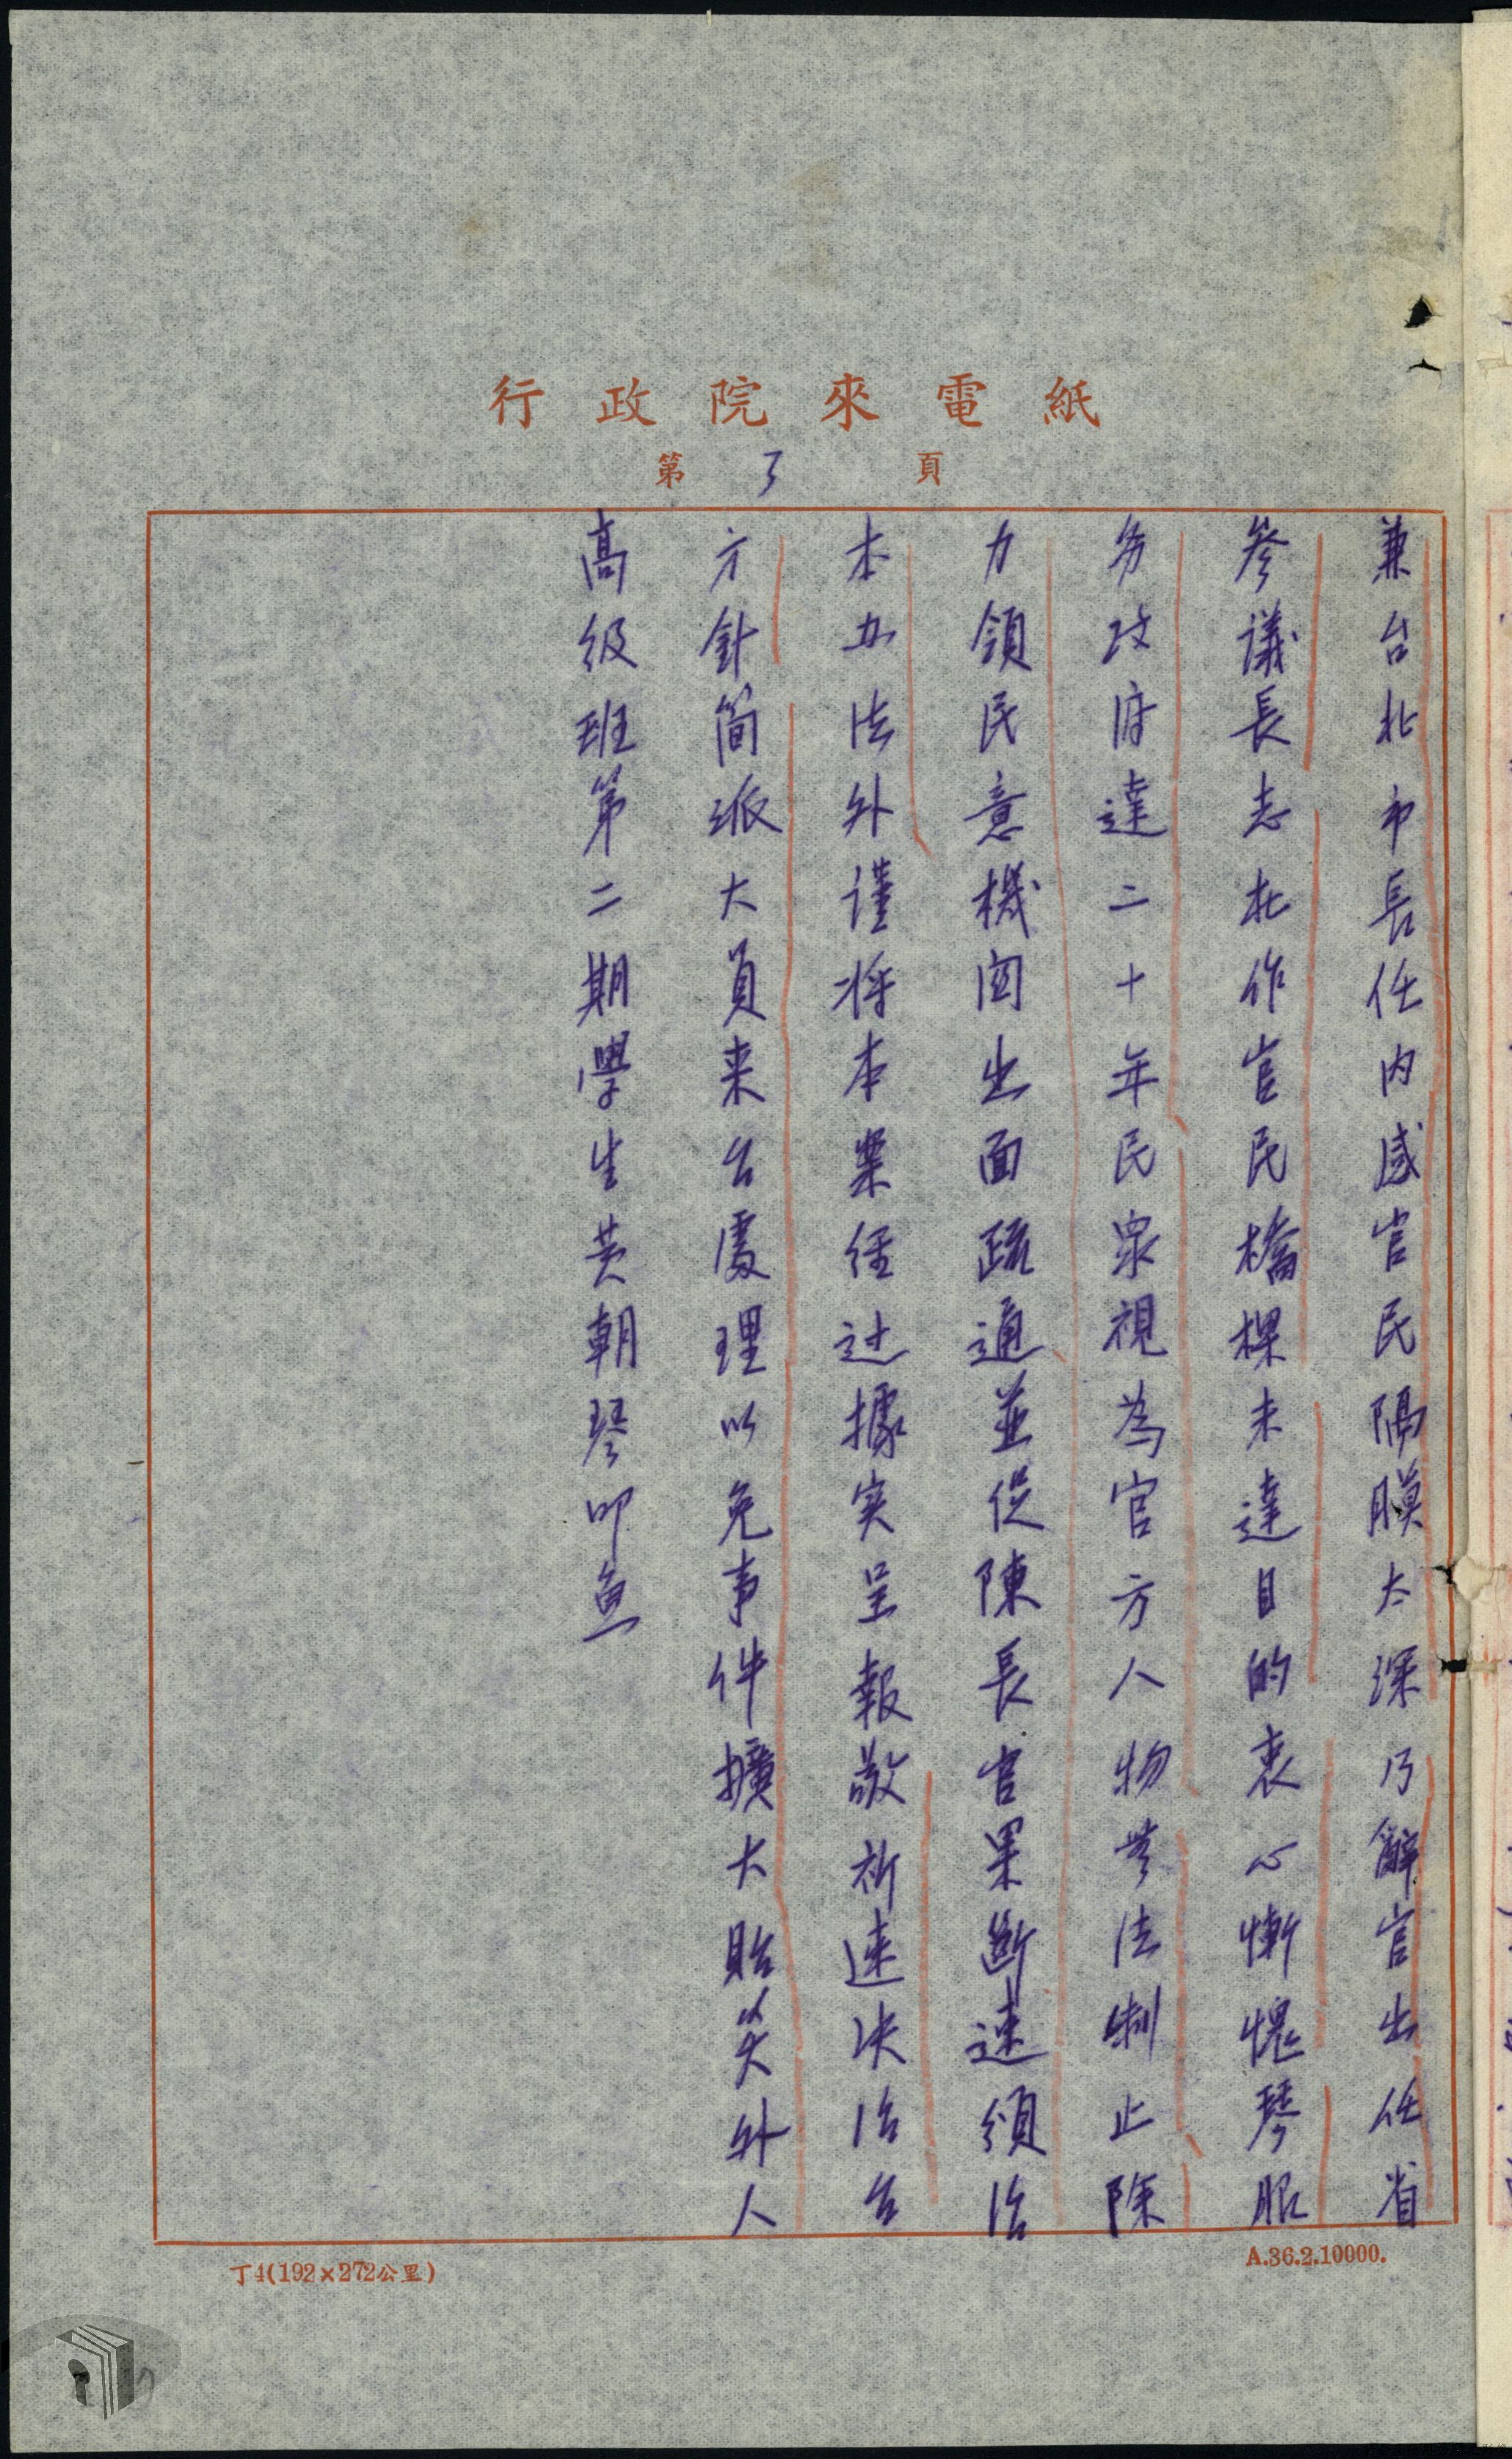 行政院來電紙
第 3 頁
兼台北市長任內感官民隔膜太深乃辭官出任省
參議長志在作官民橋樑未達目的衷心慚愧琴服
务政府達二十年民衆視為官方人物無法制止除
力領民意機関出面疏通並促陳長官果斷速頒治
本办法外謹将本案經过據实呈報敬祈速决治台
方針简派大員来台處理以免事件擴大貽笑外人
高级班第二期學生黄朝琴叩魚
丁4(192×272公里)
A.36.2.10000.